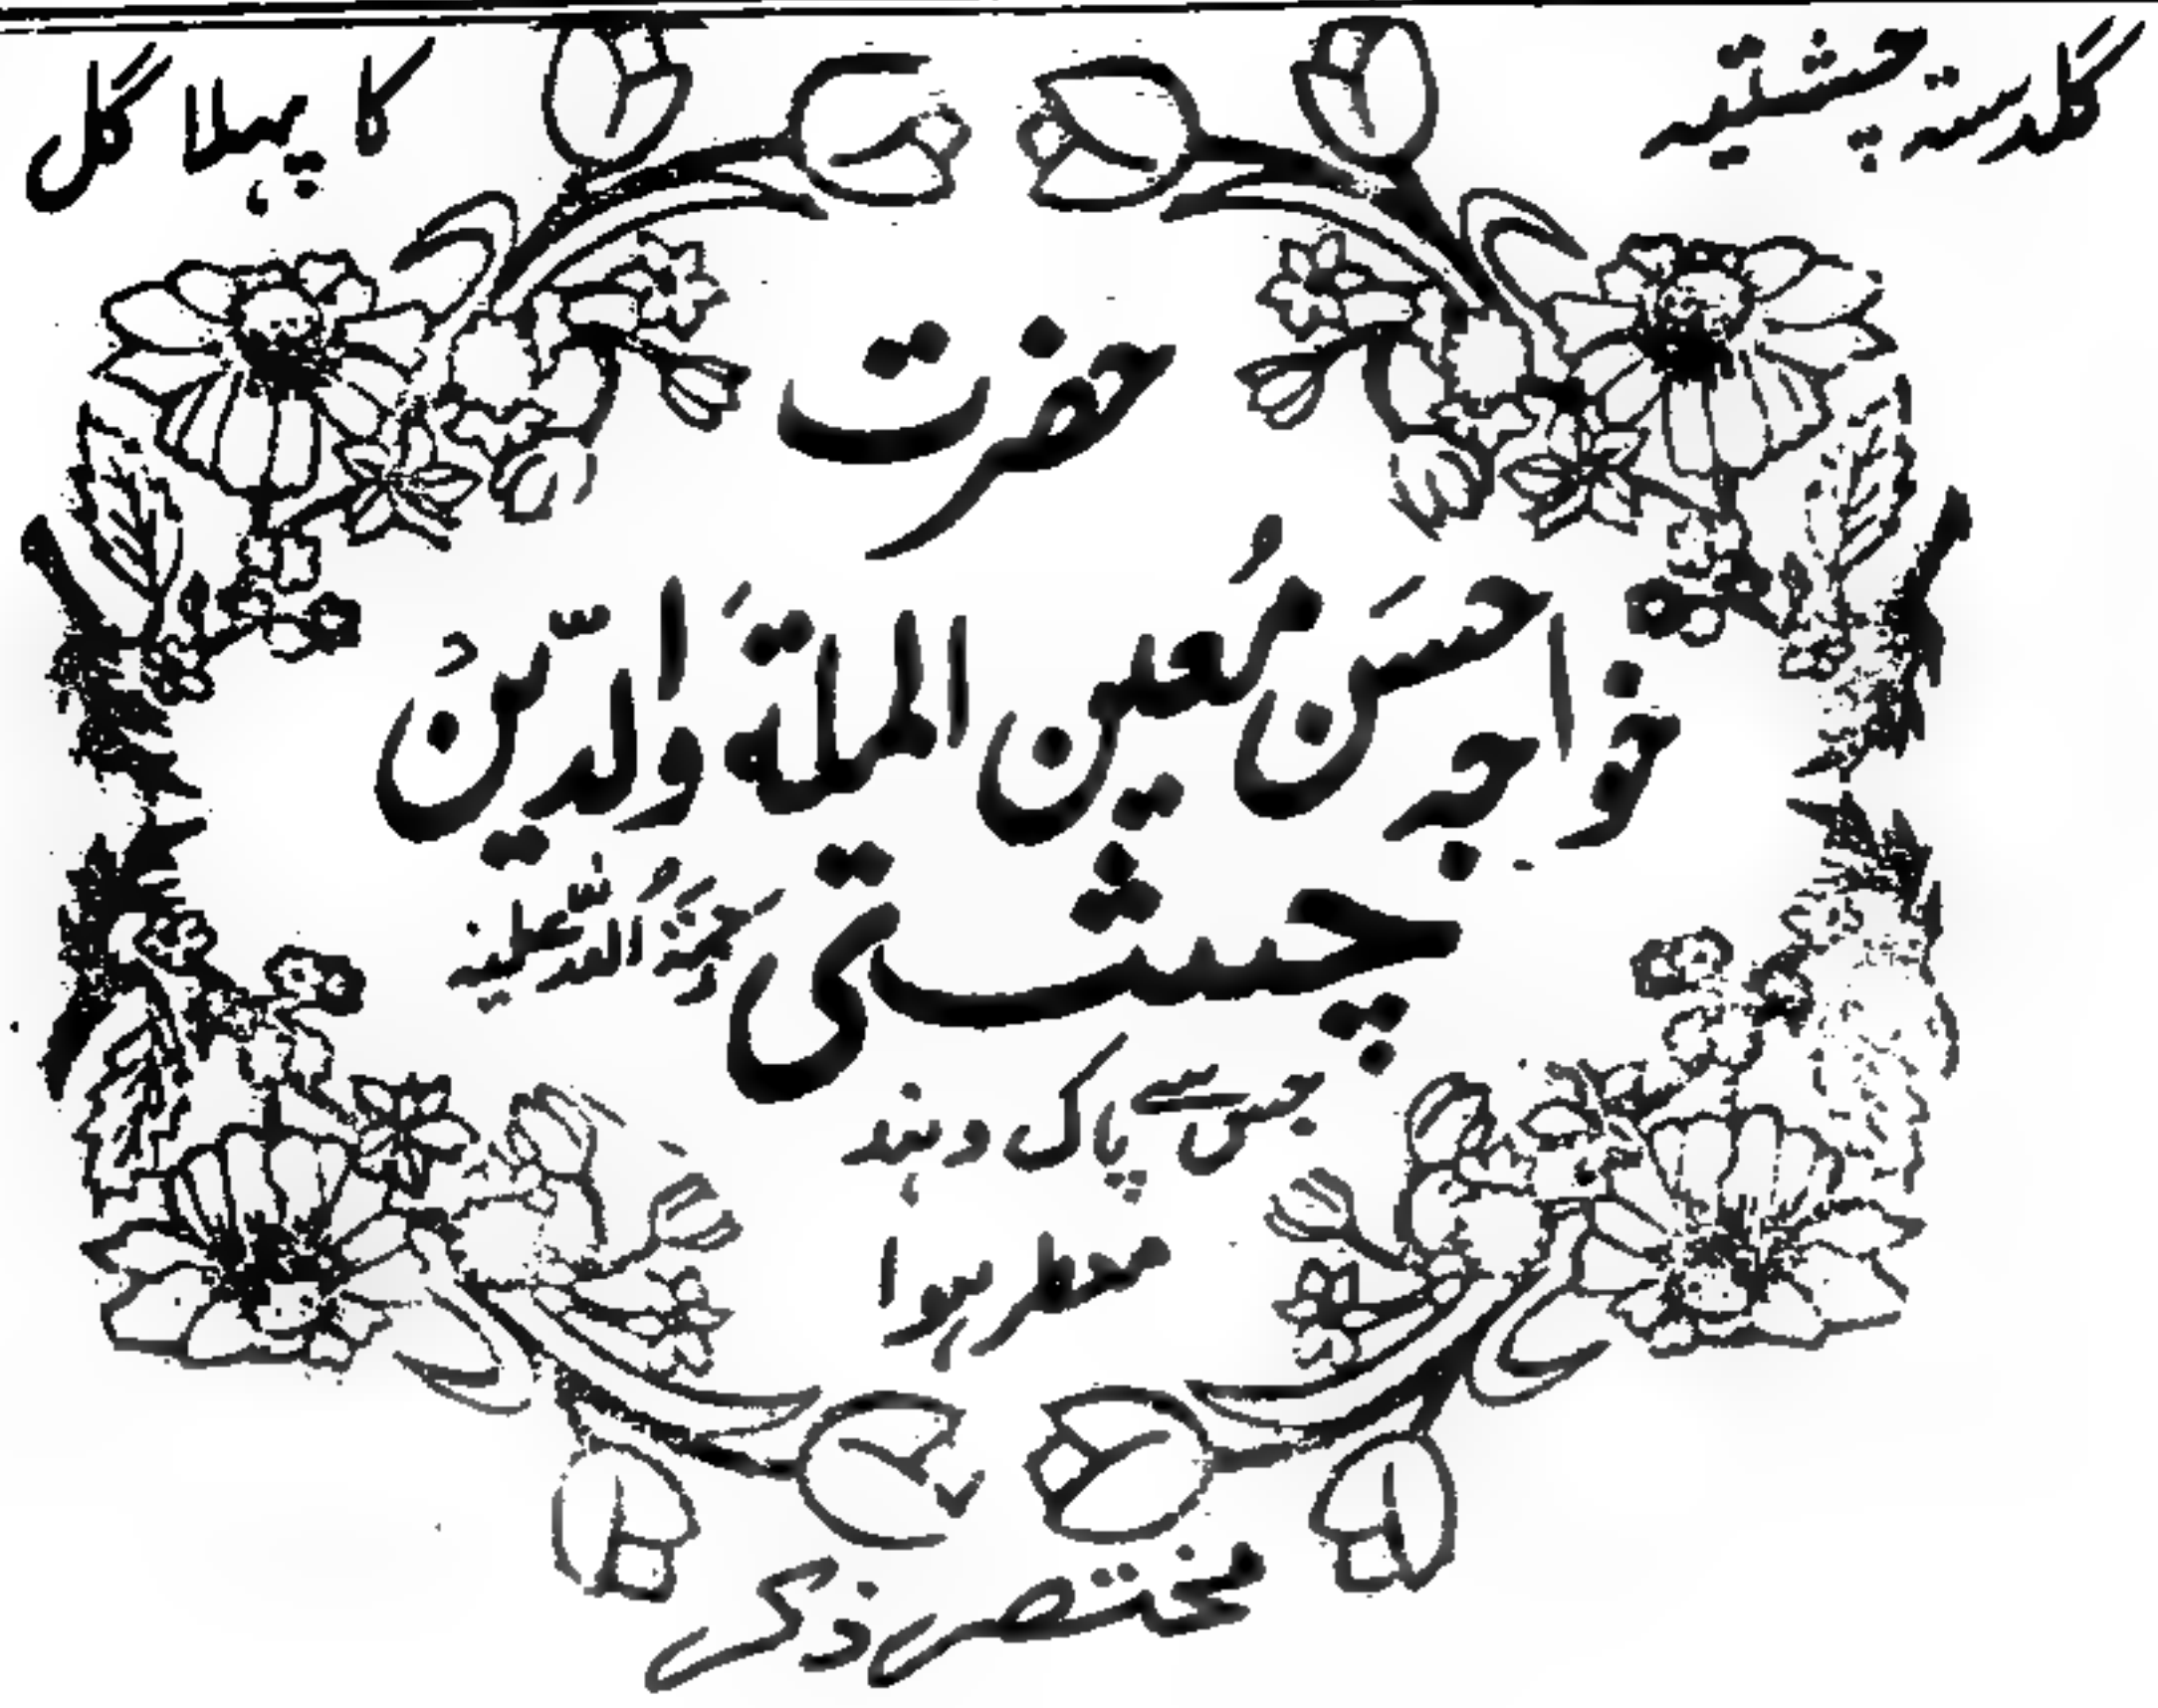 گلدستہ چشتیہ کا پہلا گل
حضرت
خواجہ حسَن مُعین الملۃَ والدّینُ
چشتی رحمۃُ اللّٰہ علیہ
جس سے پاک و ہند
معطر ہوا
مختصر ذکر